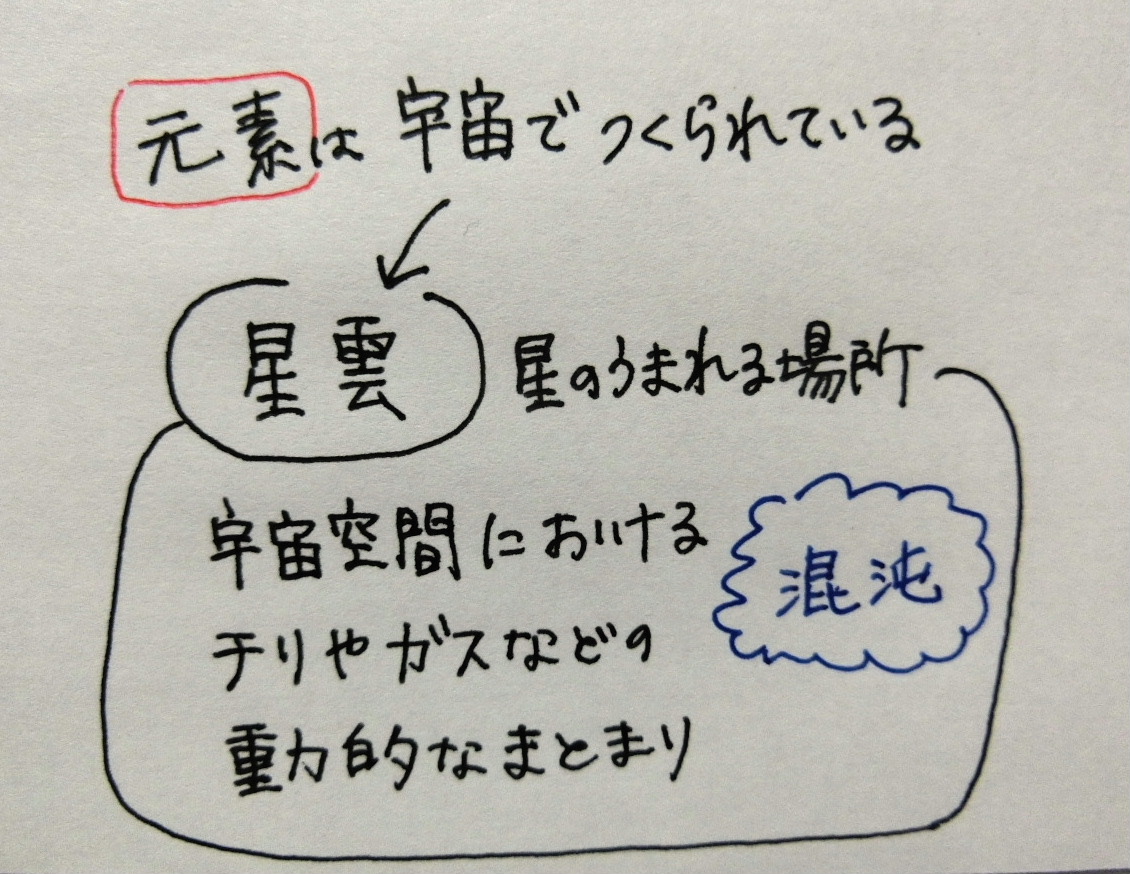 元素は宇宙でつくられている
星雲 星のうまれる場所
宇宙空間における
チリやガスなどの
重力的なまとまり
混沌